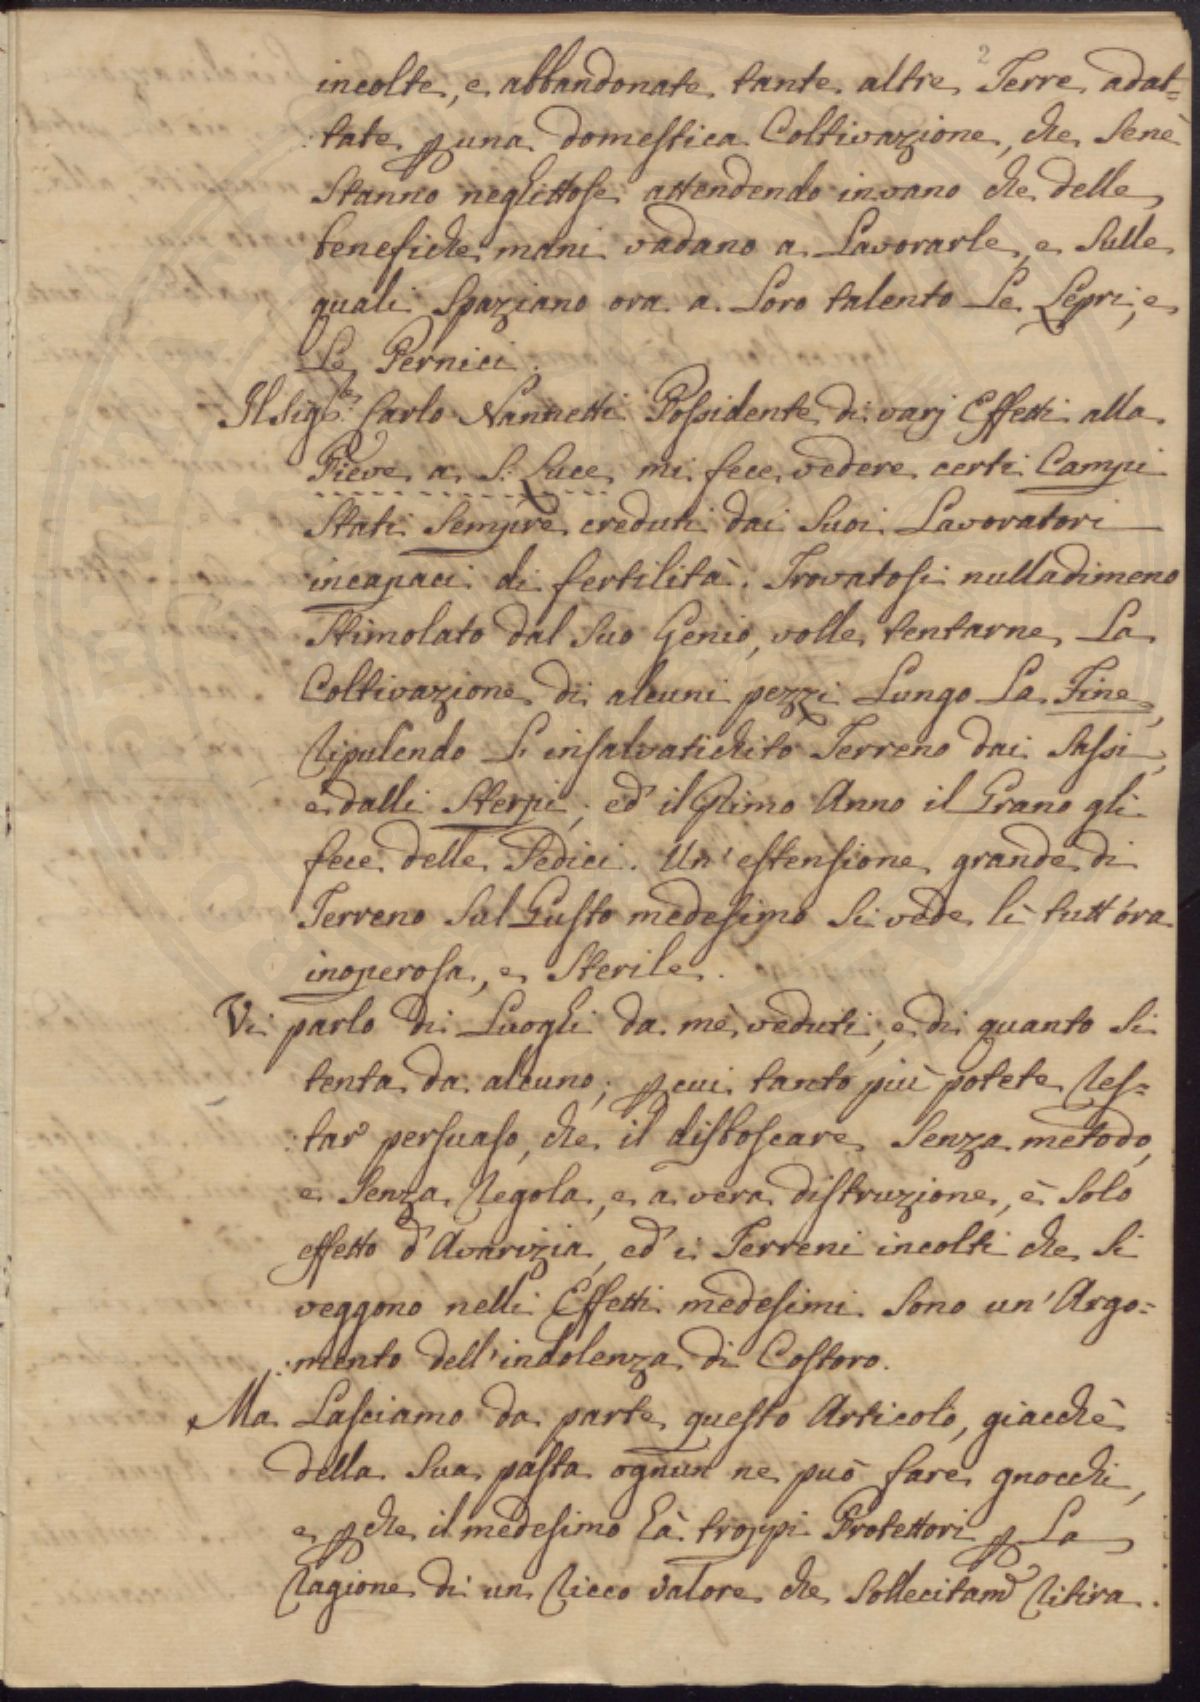 2
incolte, e abbandonate tante altre Terre adat=
:tate p una domestica Coltivazione, che Senè
Stanno neghittose attendendo invano che delle
benefiche mani vadano a Lavorarle, e Sulle
quali Spaziano ora a Loro talento Le Lepri, e
Le Pernici.
Il Sigre. Carlo Nannetti Possidente di varj Effetti alla
Pieve a S: Luce mi fece vedere certi Campi
Stati Sempre creduti dai Suoi Lavoratori
incapaci di fertilità. Trovatosi nulladimeno
Stimolato dal Suo Genio, volle tentarne La
Coltivazione di alcuni pezzi Lungo La Fine,
ripulendo L'insalvatichito Terreno dai Sassi,
e dalli Sterpi; ed' il Primo Anno il Grano gli
fece delle Sedici. Un' estensione grande di
Terreno Sul Gusto medesimo Si vede lì tutt'óra
inoperosa, e Sterile.
Vi parlo di Luoghi da mè veduti, e di quanto Si
tenta da alcuno; p cui tanto più potete res=
:tar persuaso, che il disboscare Senza metodo,
e Senza regola, e a vera distruzione, è Solo
effetto d'Avarizia, ed' i Terreni incolti che Si
veggono nelli Effetti medesimi Sono un' Argo=
:mento dell'indolenza di Costoro.
Ma Lasciamo da parte questo Articolo, giacchè
della Sua pasta ognun ne può fare gnocchi,
e pche il medesimo hà troppi Protettori p La
ragione di un ricco valore che Sollecitam ritira.